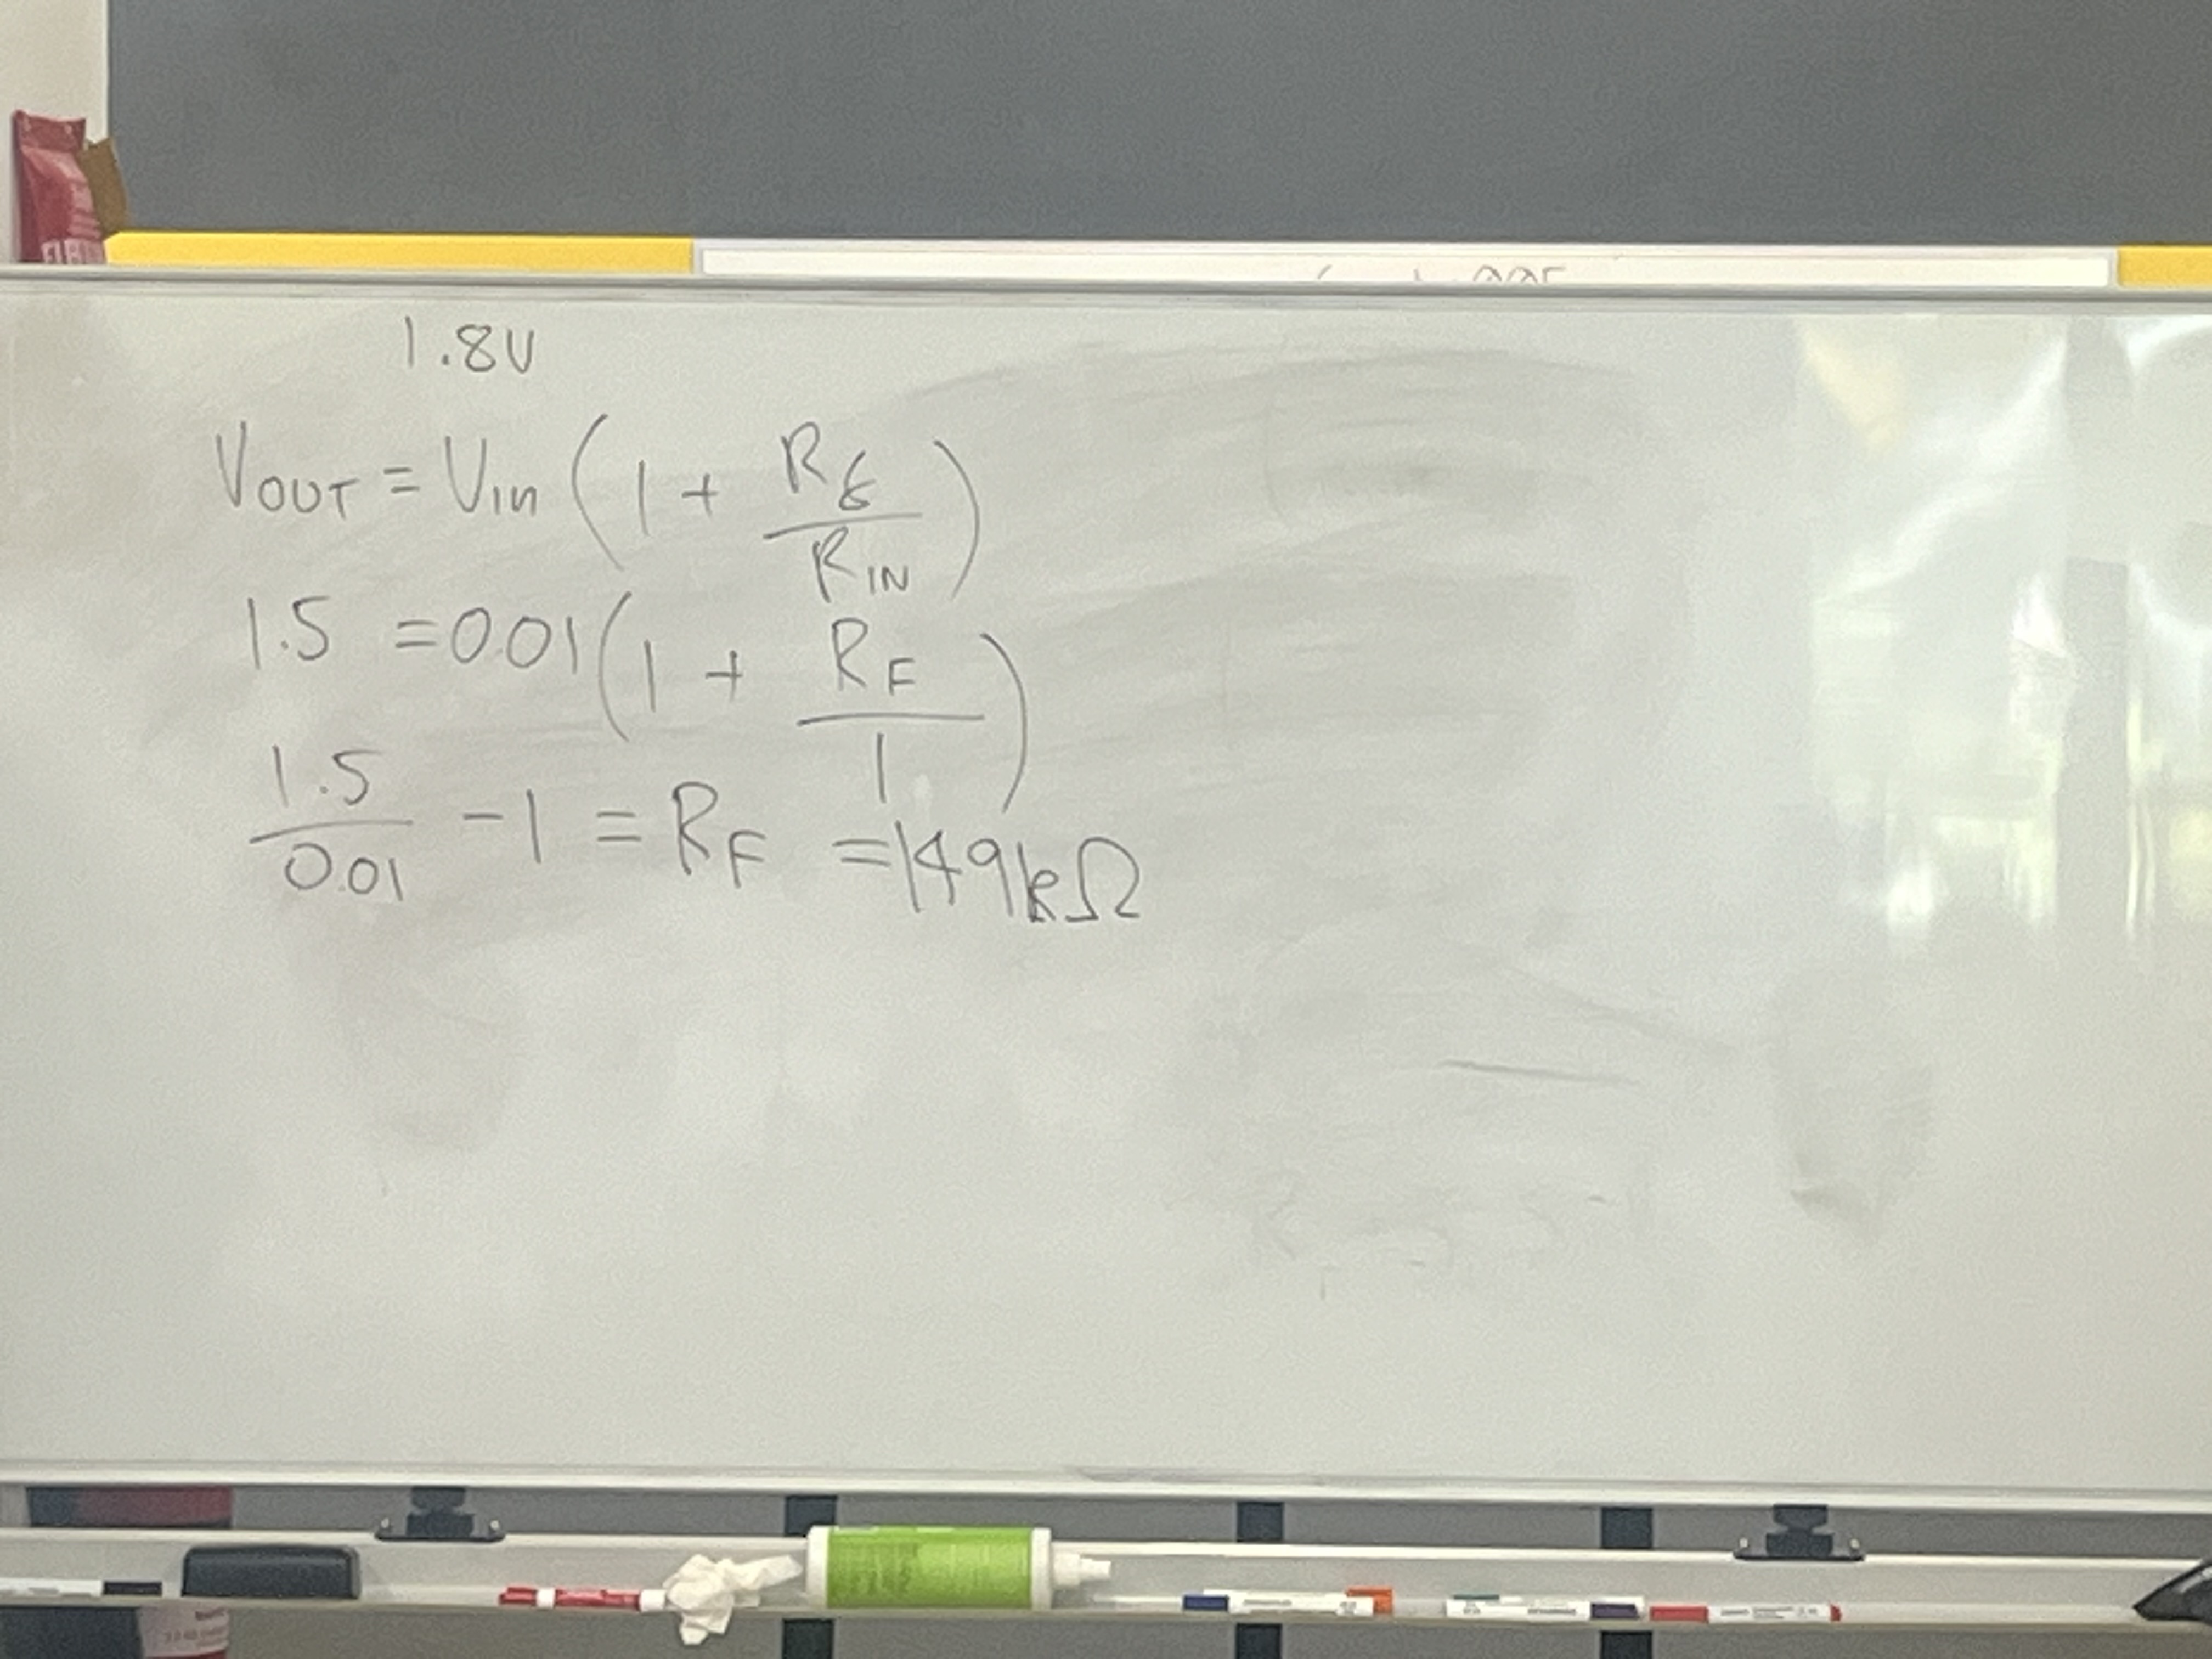 1.8V
VOUT = Vin (1 + Rf/RIN)
1.5 = 0.01 (1 + RF/1)
1.5/0.01 - 1 = RF = 149kΩ